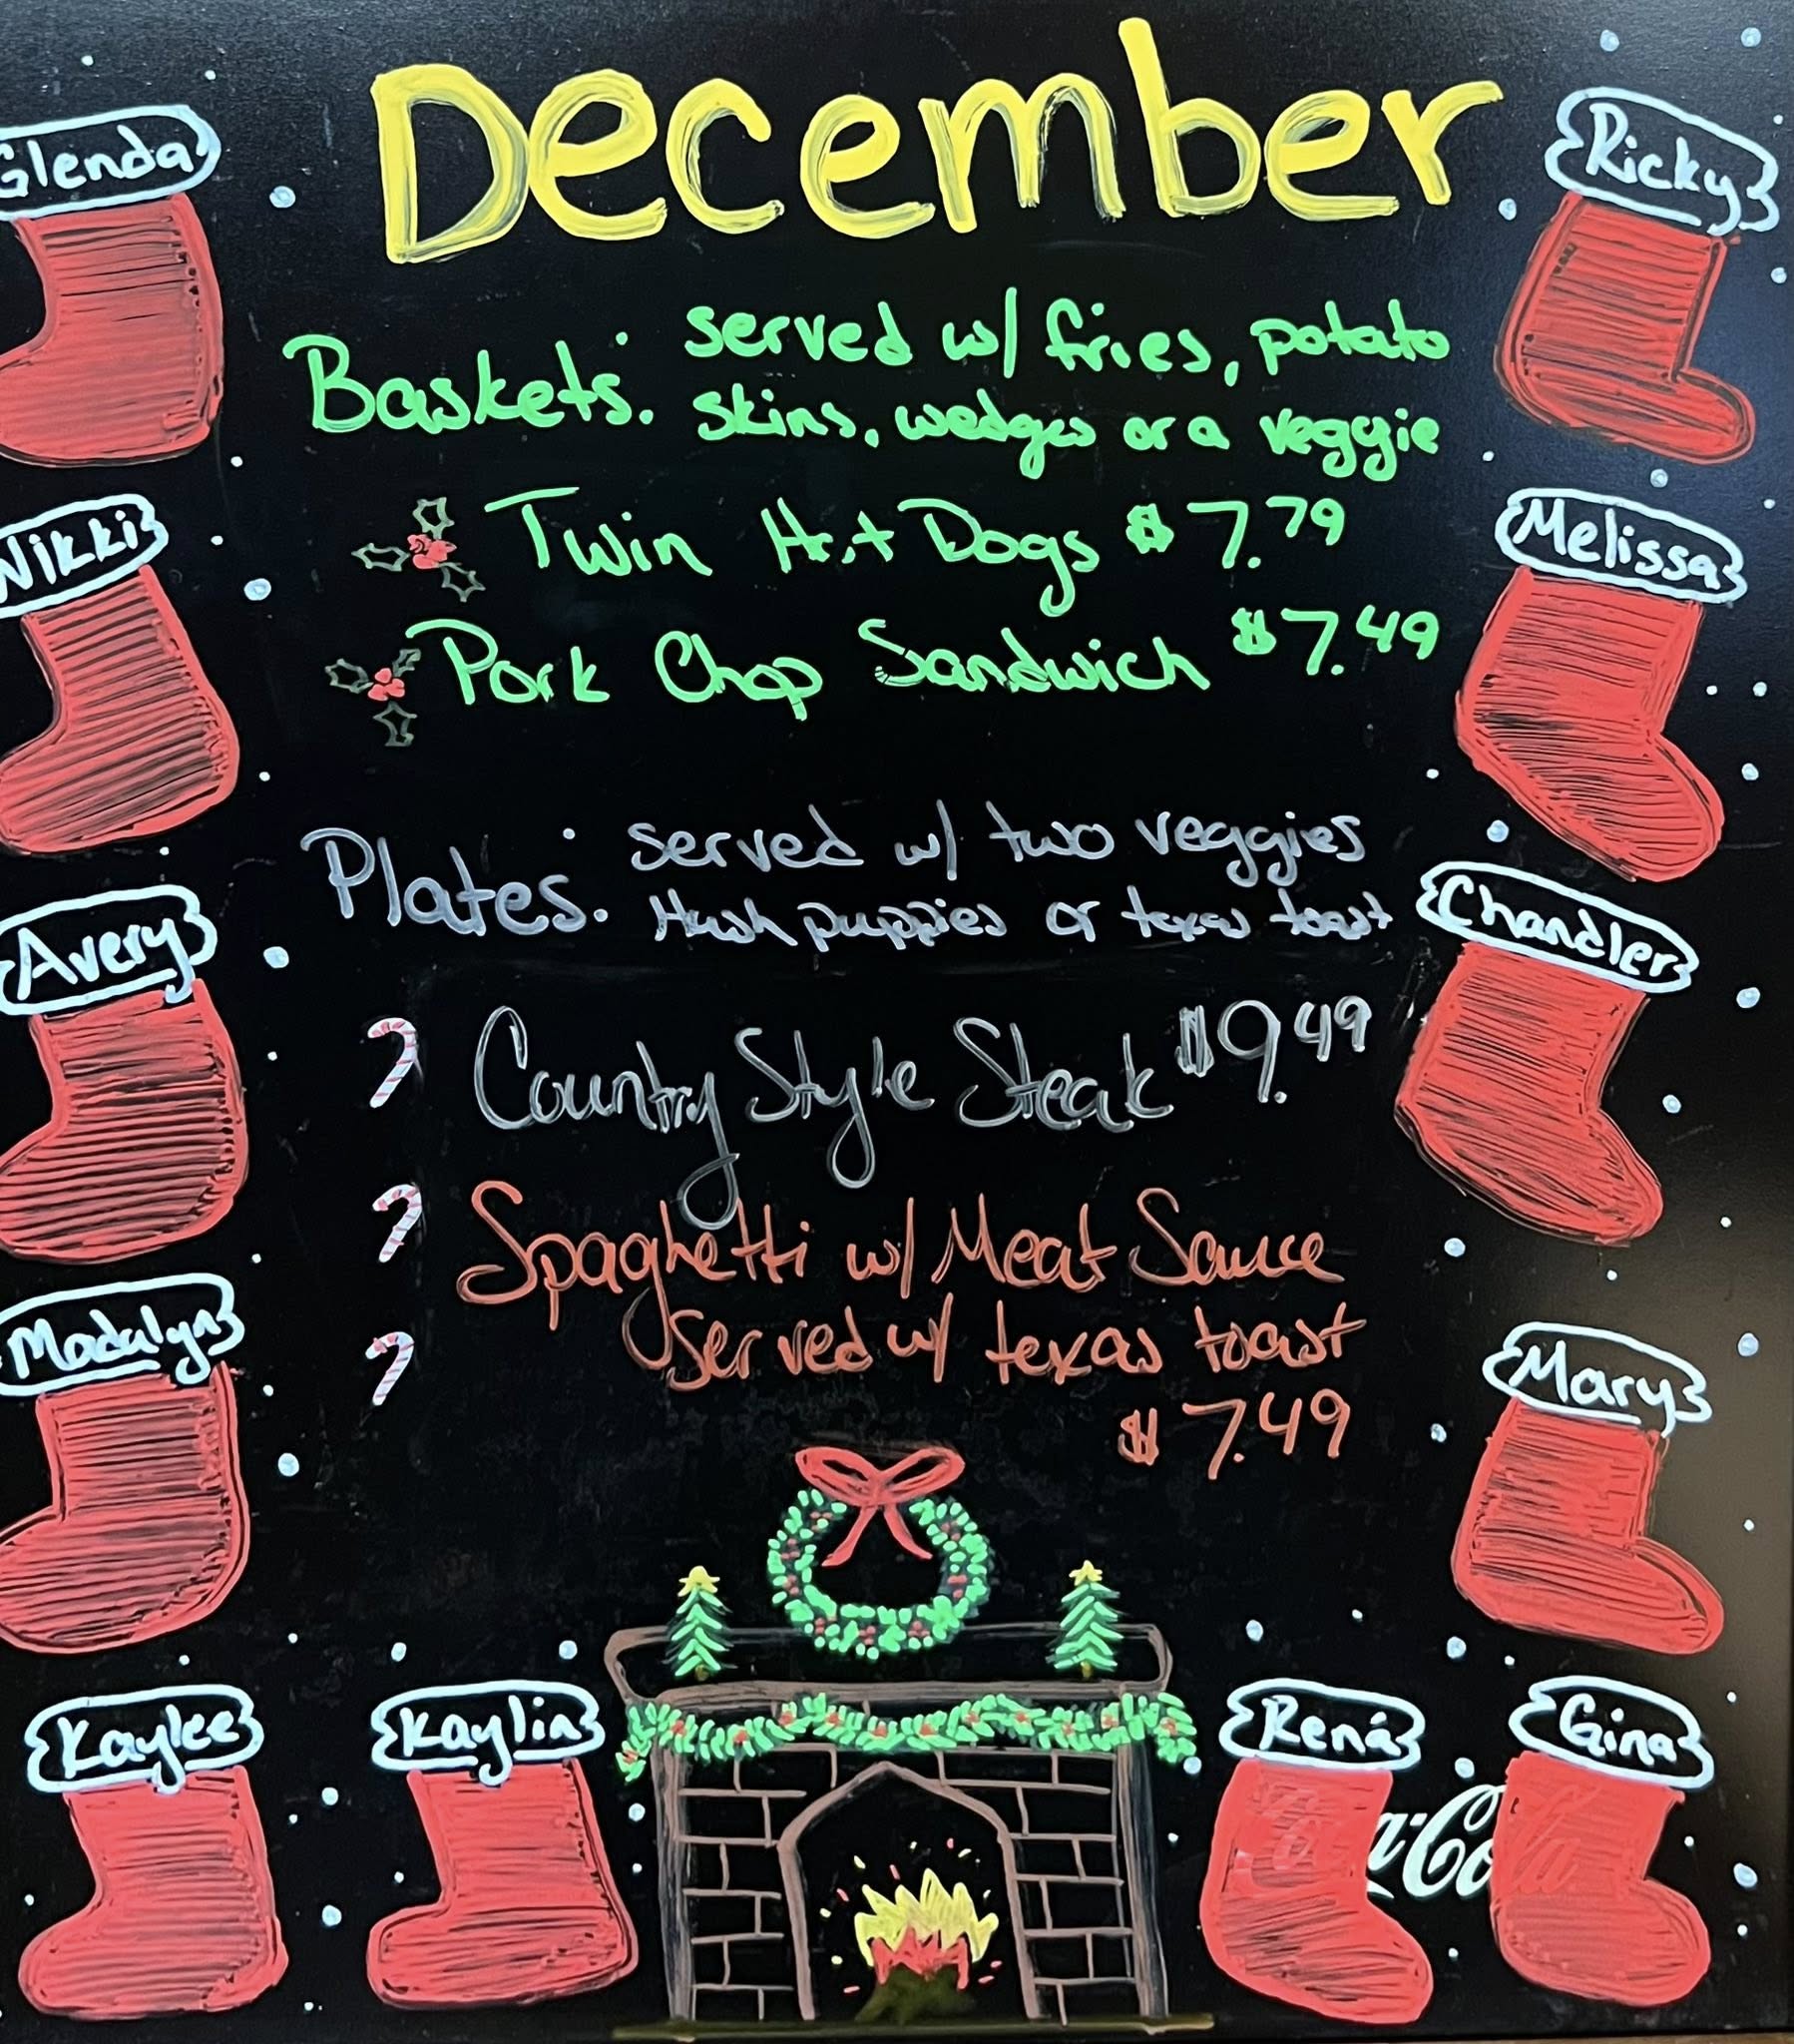 December
Glenda
Ricky
Baskets: served w/ fries, potato
skins, wedges or a veggie
Nikki
Twin Hot Dogs $7.79
Melissa
Pork Chop Sandwich $7.49
Plates: served w/ two veggies
Hush puppies or texas toast
Avery
Chandler
Country Style Steak $9.49
Spaghetti w/ Meat Sauce
served w/ texas toast
$7.49
Madalyn
Mary
Kaylee
Kaylin
Rená
Gina